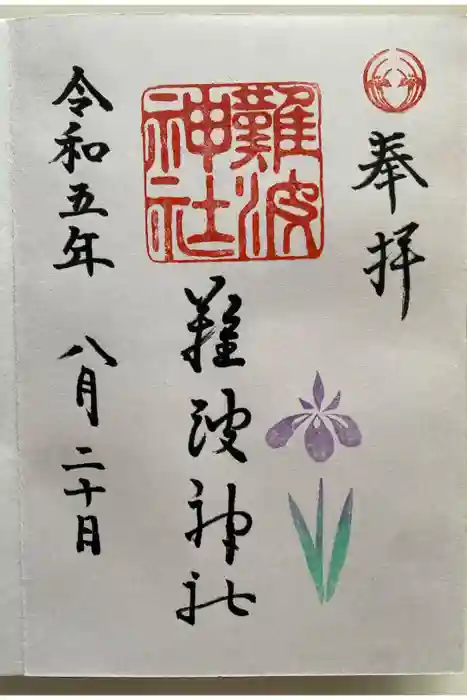 奉拝
難波神社
難波神社
令和五年 八月二十日